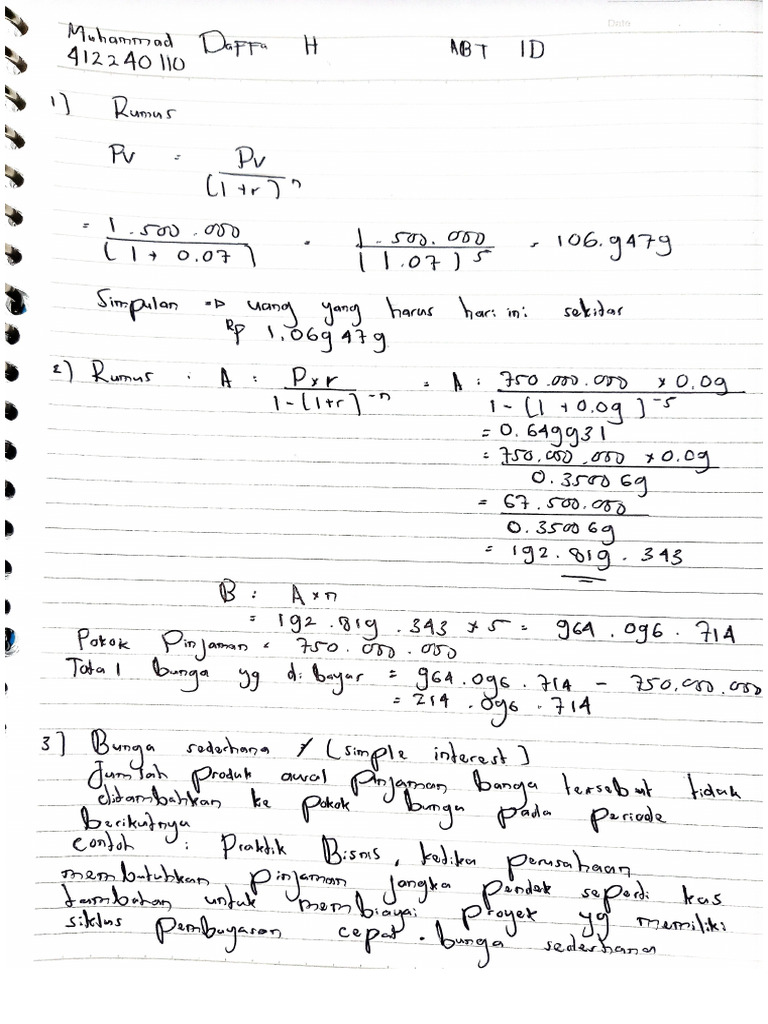 Date
Muhammad Daffa H ABT 1D
412240110
1) Rumus
Pv = Pv / (1+r)^n
= 1.500.000 / (1 + 0.07) = 1.500.000 / (1.07)^5 = 106.9479
Simpulan => uang yang harus hari ini sekitar
Rp 1.069479
2) Rumus : A : Pxr / 1-(1+r)^-n = A : 750.000.000 x 0.09 / 1-(1+0.09)^-5
= 0.649931
= 750.000.000 x 0.09 / 0.350069
= 67.500.000 / 0.350069
= 192.819.343
B : A x n
= 192.819.343 x 5 = 964.096.714
Pokok Pinjaman = 750.000.000
Total bunga yg di bayar = 964.096.714 - 750.000.000
= 214.096.714
3] Bunga sederhana / (simple interest)
Jumlah produk awal pinjaman bunga tersebut tidak
ditambahkan ke pokok bunga pada periode
berikutnya
contoh : Praktik Bisnis, ketika perusahaan
membutuhkan pinjaman jangka pendek seperti kas
tambahan untuk membiayai proyek yg memiliki
siklus pembayaran cepat. bunga sederhana